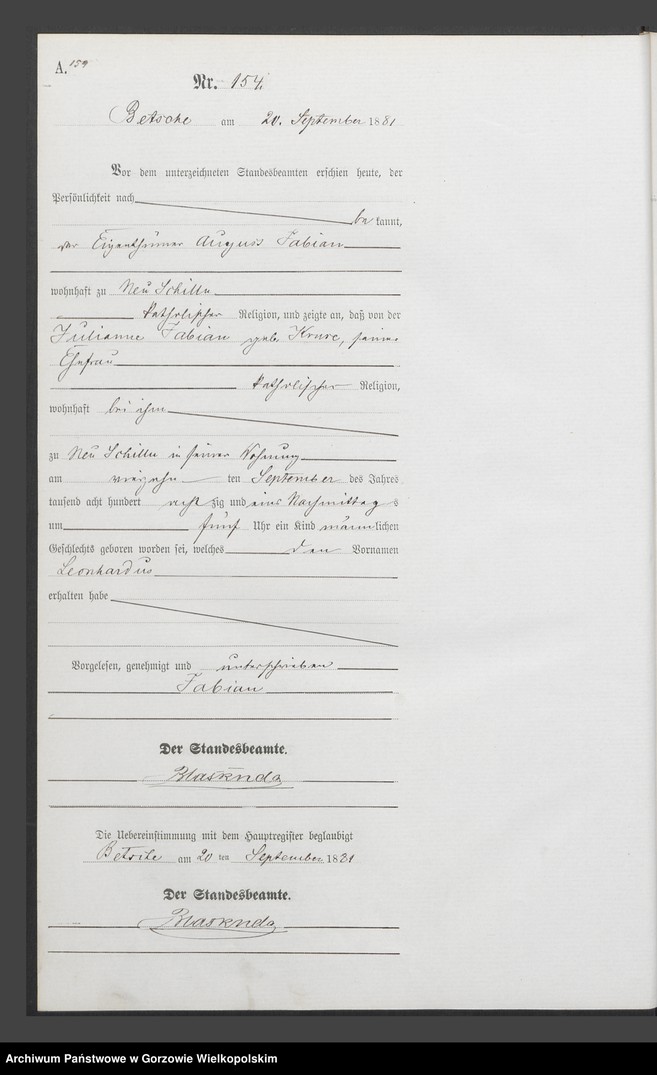 A. 154
Nr. 154.
Betsche am 20. September 1881
Vor dem unterzeichneten Standesbeamten erschien heute, der
Persönlichkeit nach
be kannt,
der Eigenthümer August Fabian
wohnhaft zu Neu Schilln
katholischer Religion, und zeigte an, daß von der
Julianne Fabian geb. seiner
Ehefrau
katholischer Religion,
wohnhaft bei ihm
zu Neu Schilln in seiner Wohnung
am vierzehn ten September des Jahres
tausend acht hundert acht zig und eins Nachmittag s
um fünf Uhr ein Kind männlichen
Geschlechts geboren worden sei, welches den Vornamen
Leonhardus
erhalten habe
Vorgelesen, genehmigt und unterschrieben
Fabian
Der Standesbeamte.
Die Uebereinstimmung mit dem Hauptregister beglaubigt
Betsche am 20 ten September 1881
Der Standesbeamte.
Archiwum Państwowe w Gorzowie Wielkopolskim